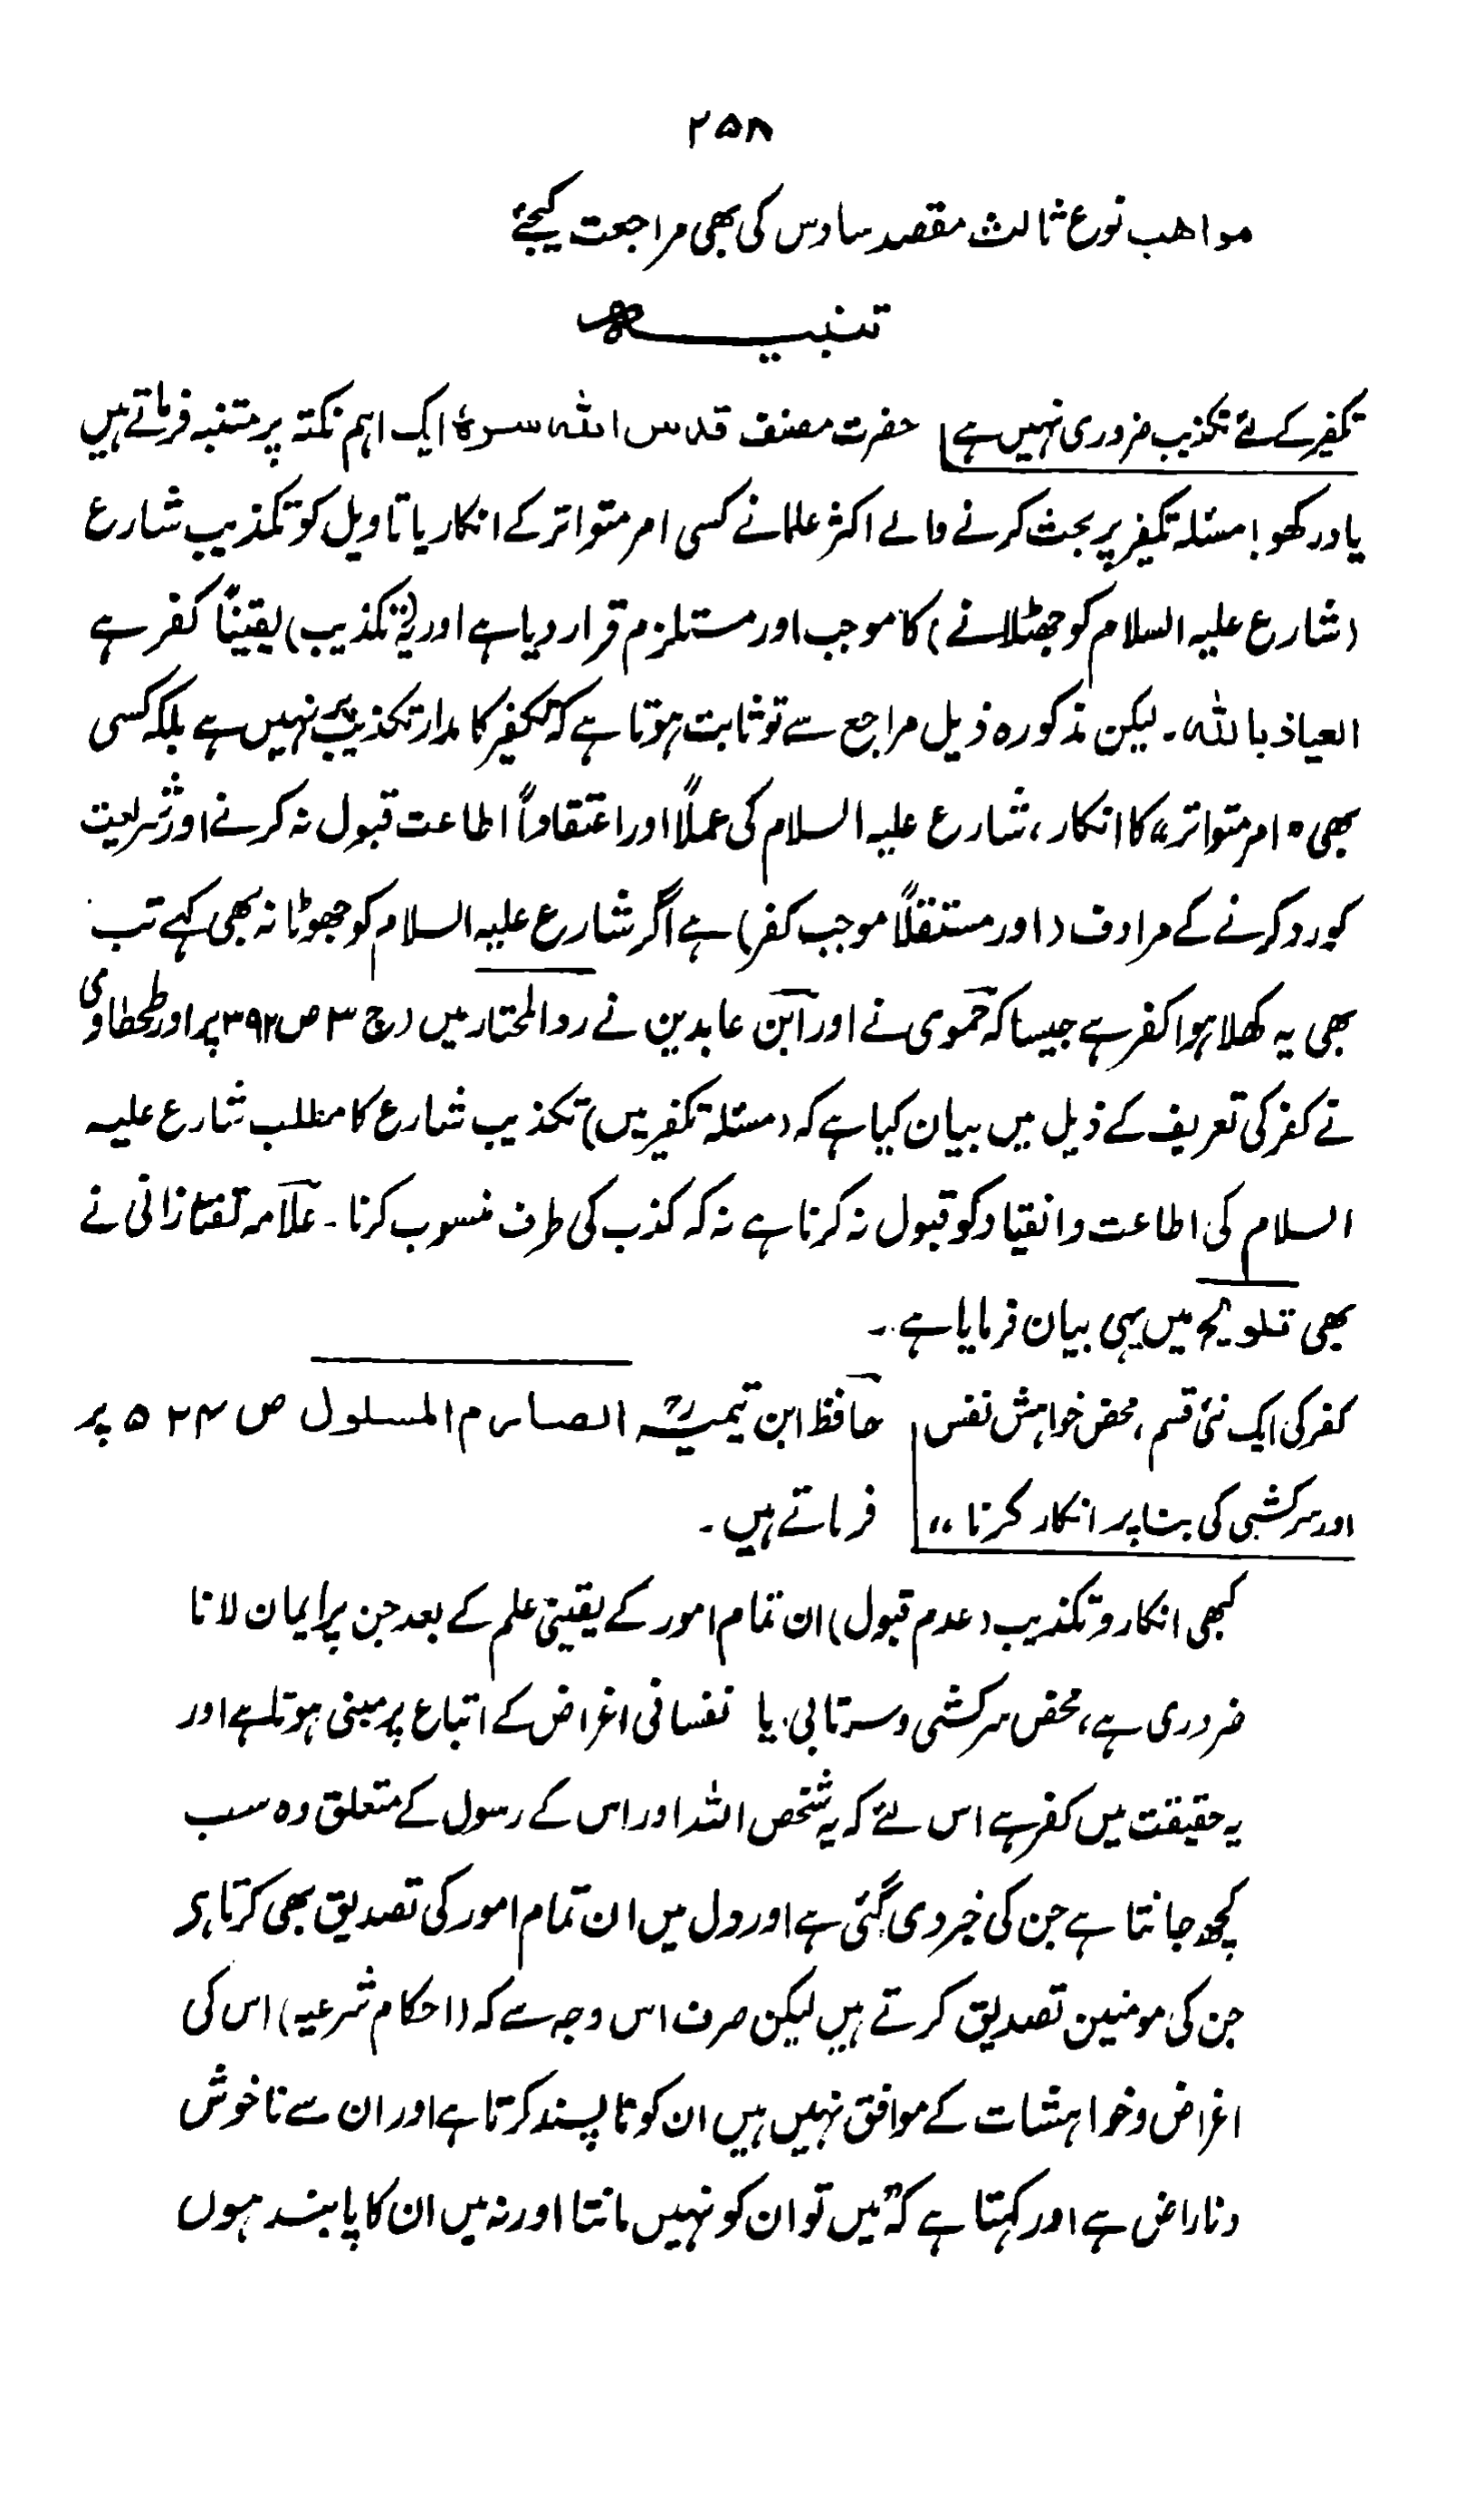 ۲۵۸
مواهب نوع ثالث مقصد سادس کی بھی مراجعت کیجئے
تنبیہ
تکفیر کے لئے تکذیب ضروری نہیں ہے حضرت مصنف قدس اللہ سرہٗ ایک اہم نکتہ پر متنبہ فرماتے ہیں
یاد رکھو! مسئلہ تکفیر پر بحث کرنے والے اکثر علما نے کسی امر متواتر کے انکار یا تاویل کو تکذیب شارع
(شارع علیہ السلام کو جھٹلانے) کا موجب اور مستلزم قرار دیا ہے اور (یہ تکذیب) یقیناً کفر ہے
العیاذ باللہ۔ لیکن مذکورہ ذیل مراجع سے تو ثابت ہوتا ہے کہ تکفیر کا مدار تکذیب پر نہیں ہے بلکہ کسی
بھی "امر متواتر" کا انکار، شارع علیہ السلام کی عملاً اور اعتقاداً اطاعت قبول نہ کرنے اور شریعت
کو رد کرنے کے مرادف (اور مستقلاً موجب کفر) ہے اگر شارع علیہ السلام کو جھوٹا نہ بھی کہے تب
بھی یہ کھلا ہوا کفر ہے جیسا کہ حموی نے اور ابن عابدین نے رد المحتار میں (ج ۳ ص ۳۹۲ پر اور طحطاوی
نے کفر کی تعریف کے ذیل میں بیان کیا ہے کہ (مسئلہ تکفیر میں) تکذیب شارع کا مطلب شارع علیہ
السلام کی اطاعت و انقیاد کو قبول نہ کرنا ہے نہ کہ کذب کی طرف منسوب کرنا۔ علامہ تفتازانی نے
بھی تلویح میں یہی بیان فرمایا ہے۔
کفر کی ایک نئی قسم، محض خواہش نفس حافظ ابن تیمیہؒ الصارم المسلول ص ۵۲۴ پر
اور سرکشی کی بنا پر انکار کرنا" فرماتے ہیں۔
کبھی انکار و تکذیب (عدم قبول) ان تمام امور کے یقینی علم کے بعد جن پر ایمان لانا
ضروری ہے، محض سرکشی و سرتابی، یا نفسانی اغراض کے اتباع پر مبنی ہوتا ہے اور
یہ حقیقت میں کفر ہے اس لئے کہ یہ شخص اللہ اور اس کے رسول کے متعلق وہ سب
کچھ جانتا ہے جن کی خبر دی گئی ہے اور دل میں ان تمام امور کی تصدیق بھی کرتا ہو
جن کی مومنین تصدیق کرتے ہیں لیکن صرف اس وجہ سے کہ (احکام شرعیہ) اس کی
اغراض و خواہشات کے موافق نہیں ہیں ان کو ناپسند کرتا ہے اور ان سے ناخوش
و ناراض ہے اور کہتا ہے کہ "میں تو ان کو نہیں مانتا اور نہ میں ان کا پابند ہوں